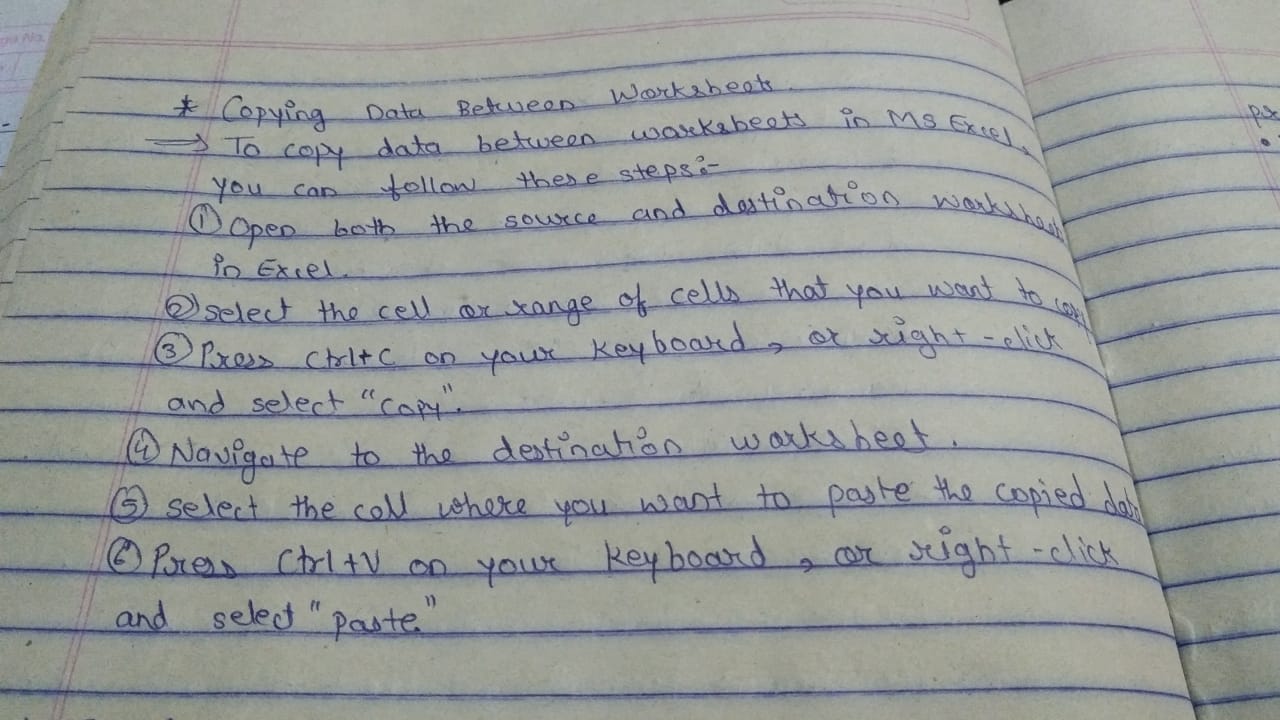 * Copying Data Between Worksheets.
→ To copy data between worksheets in MS Excel,
you can follow these steps:-
① Open both the source and destination worksheets
in Excel.
② select the cell or range of cells that you want to copy
③ Press Ctrl+C on your keyboard, or right-click
and select "copy".
④ Navigate to the destination worksheet.
⑤ select the cell where you want to paste the copied data
⑥ Press Ctrl+V on your keyboard, or right-click
and select "paste."